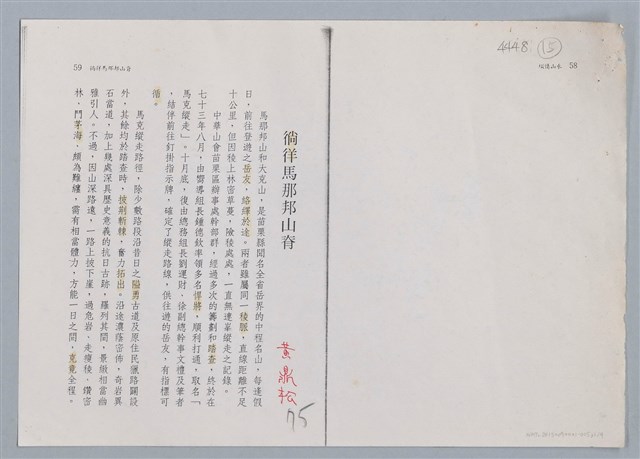 4448 ⑮
58 水山傳奇
徜徉馬那邦山脊
馬那邦山和大克山，是苗栗縣聞名全省岳界的中程名山，每逢假
日，前往登遊之岳友，絡繹於途。兩者雖屬同一稜脈，直線距離不足
十公里，但因稜上林密草蔓，險稜處處，一直無連峯縱走之記錄。
中華山會苗栗區辦事處幹部群，經過多次的籌劃和踏查，終於在
七十三年八月，由嚮導組長鍾德欽率領多名悍將，順利打通，取名「
馬克縱走」。十月底，復由總務組長劉運財、徐副總幹事文禮及筆者
，結伴前往釘掛指示牌，確定了縱走路線，供往遊的岳友，有指標可
循。
馬克縱走路徑，除少數路段沿昔日之隘勇古道及原住民獵路闢設
外，其餘均於踏查時，披荊斬棘，奮力拓出。沿途濃蔭密佈，奇岩異
石當道，加上幾處深具歷史意義的抗日古跡，羅列其間，景緻相當幽
雅引人。不過，因山深路遠，一路上披下崖，過危岩、走瘦稜、鑽密
林、鬥茅海，頗為難纏，需有相當體力，方能一日之間，竟竟全程。
黃鼎松
75
59 徜徉馬那邦山脊